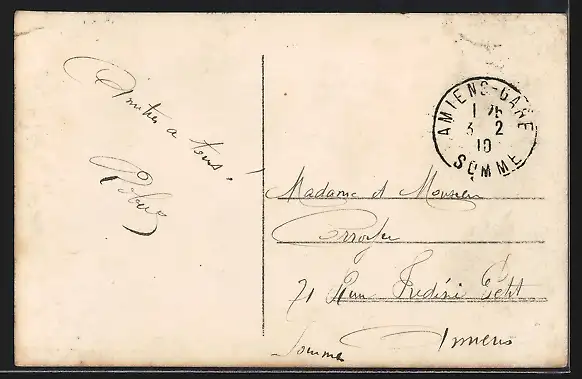 Amitiés a tous!
AMIENS-GARE
1 25
3 2
10
SOMME
Madame et Monsieur
71 Rue Frédéric Petit
Amiens
Somme